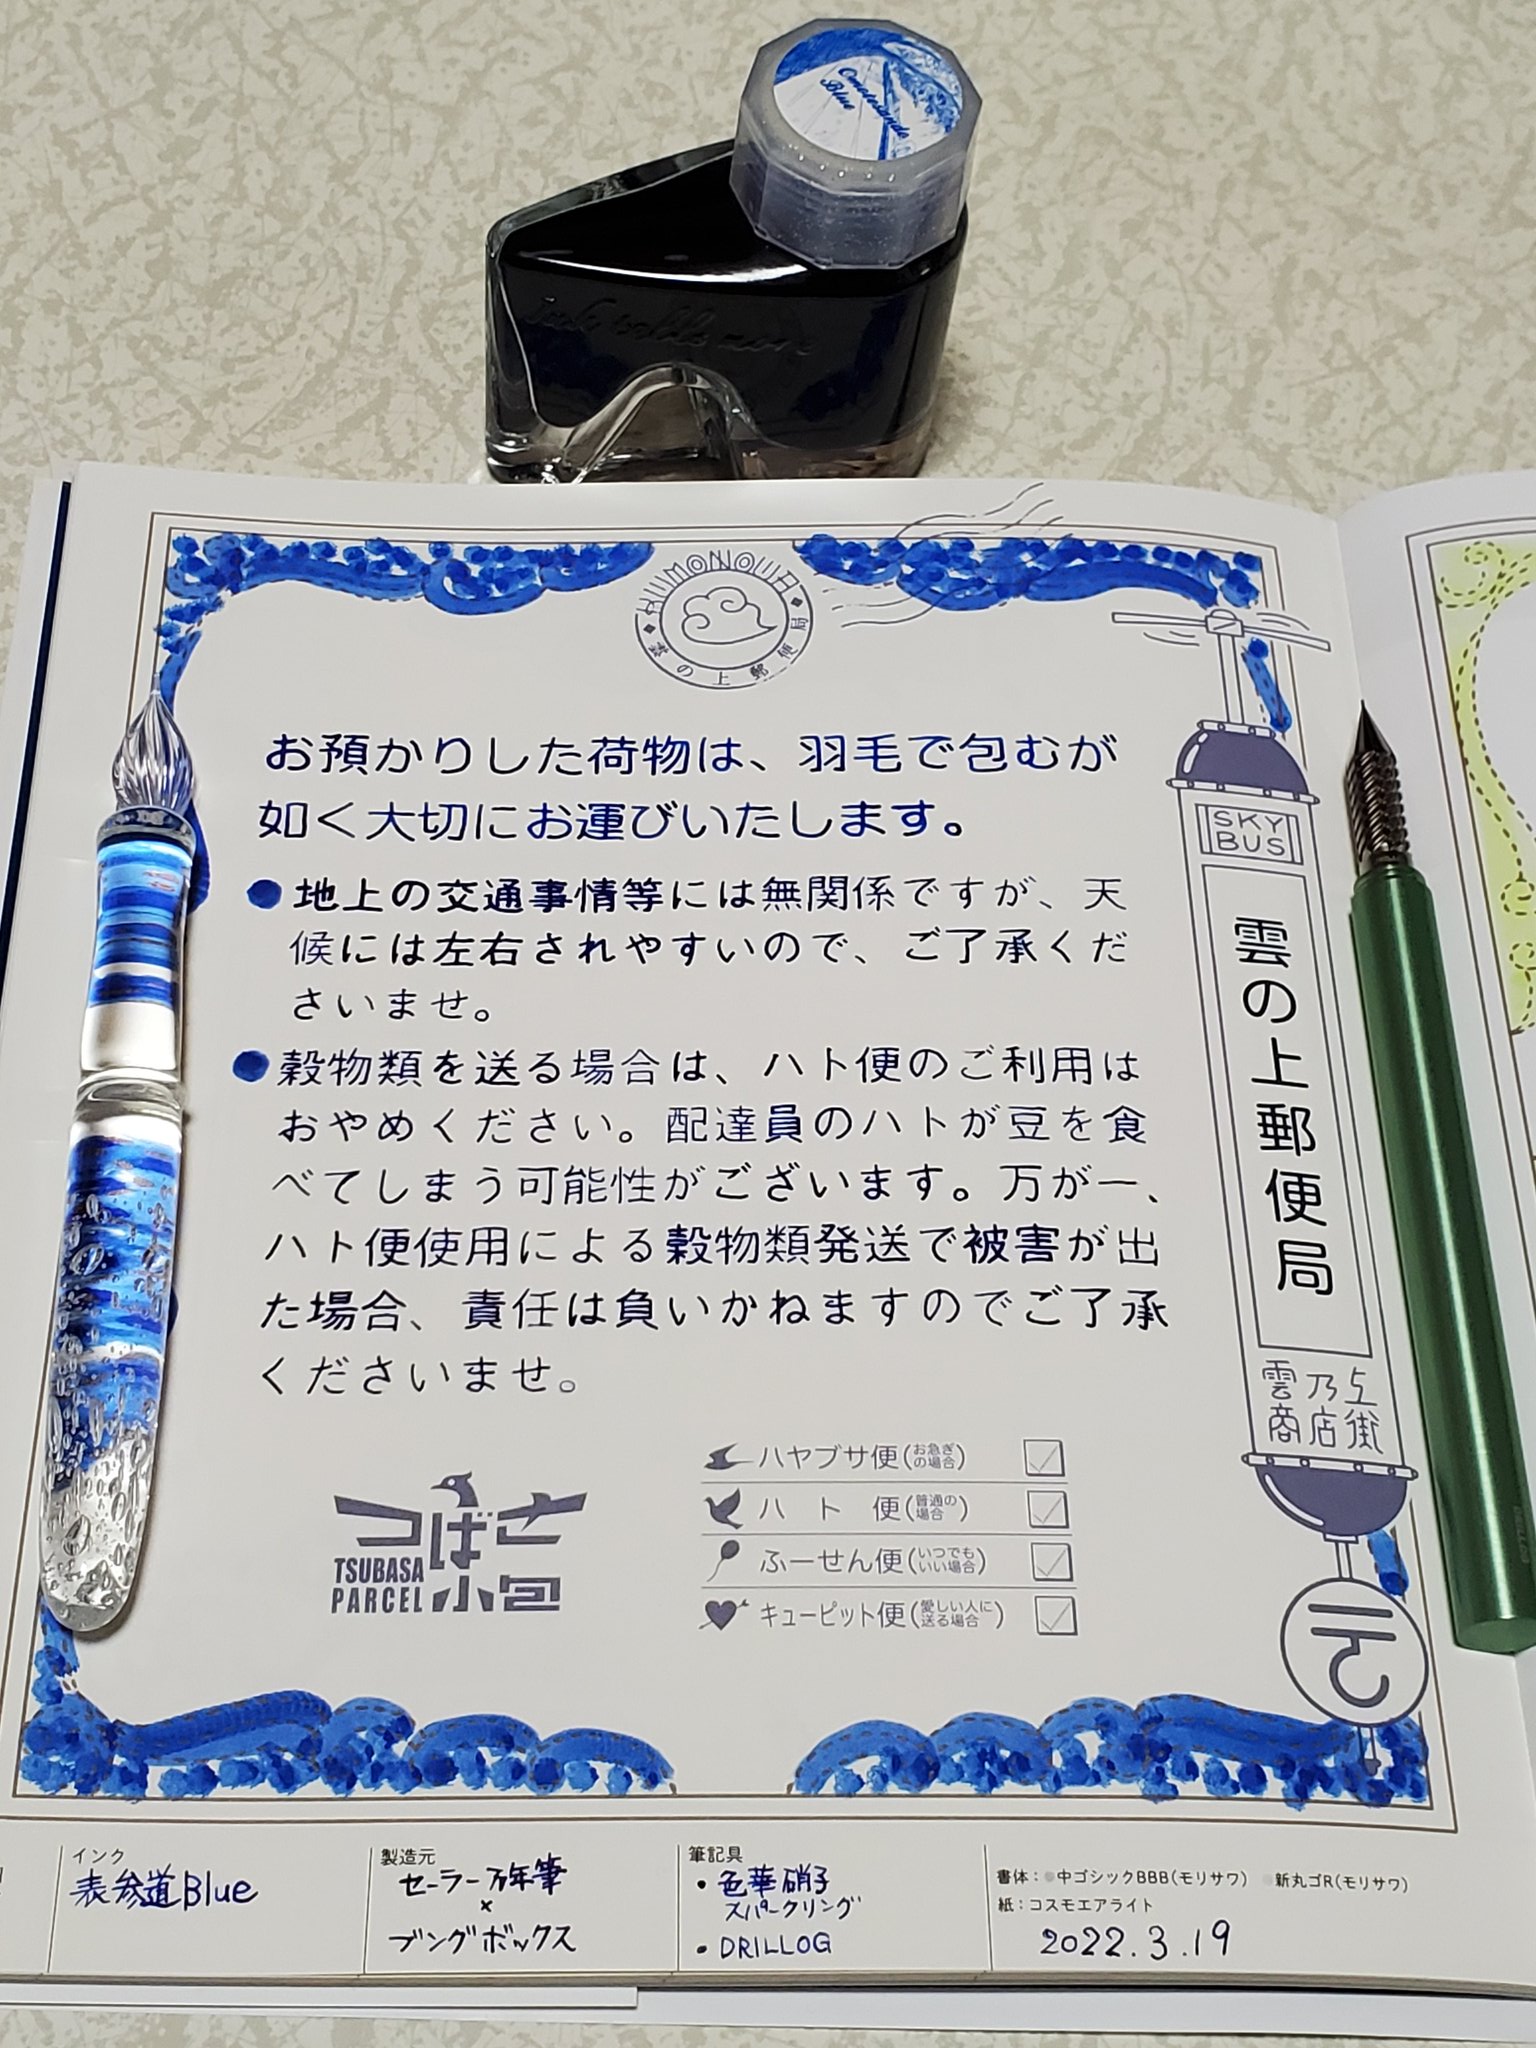 Omotesando
Blue
Ink
KUMONOUE
雲の上郵便局
お預かりした荷物は、羽毛で包むが
如く大切にお運びいたします。
●地上の交通事情等には無関係ですが、天
候には左右されやすいので、ご了承くだ
さいませ。
●穀物類を送る場合は、ハト便のご利用は
おやめください。配達員のハトが豆を食
べてしまう可能性がございます。万が一、
ハト便使用による穀物類発送で被害が出
た場合、責任は負いかねますのでご了承
くださいませ。
SKY
BUS
雲の上郵便局
雲乃上
商店街
つばさ
小包
TSUBASA
PARCEL
ハヤブサ便(お急ぎの場合)
ハト便(普通の場合)
ふーせん便(いつでもいい場合)
キューピット便(愛しい人に送る場合)
インク
表参道Blue
製造元
セーラー万年筆
×
ブングボックス
筆記具
・色華硝子
スパークリング
・DRILLOG
書体:●中ゴシックBBB(モリサワ) ●新丸ゴR(モリサワ)
紙:コスモエアライト
2022.3.19